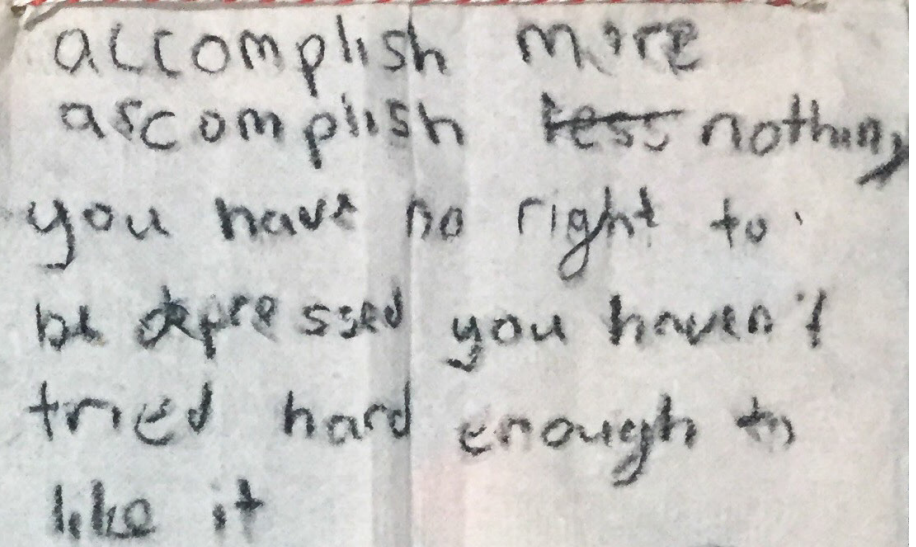 accomplish more
accomplish less nothing
you have no right to
be depressed you haven't
tried hard enough to
like it